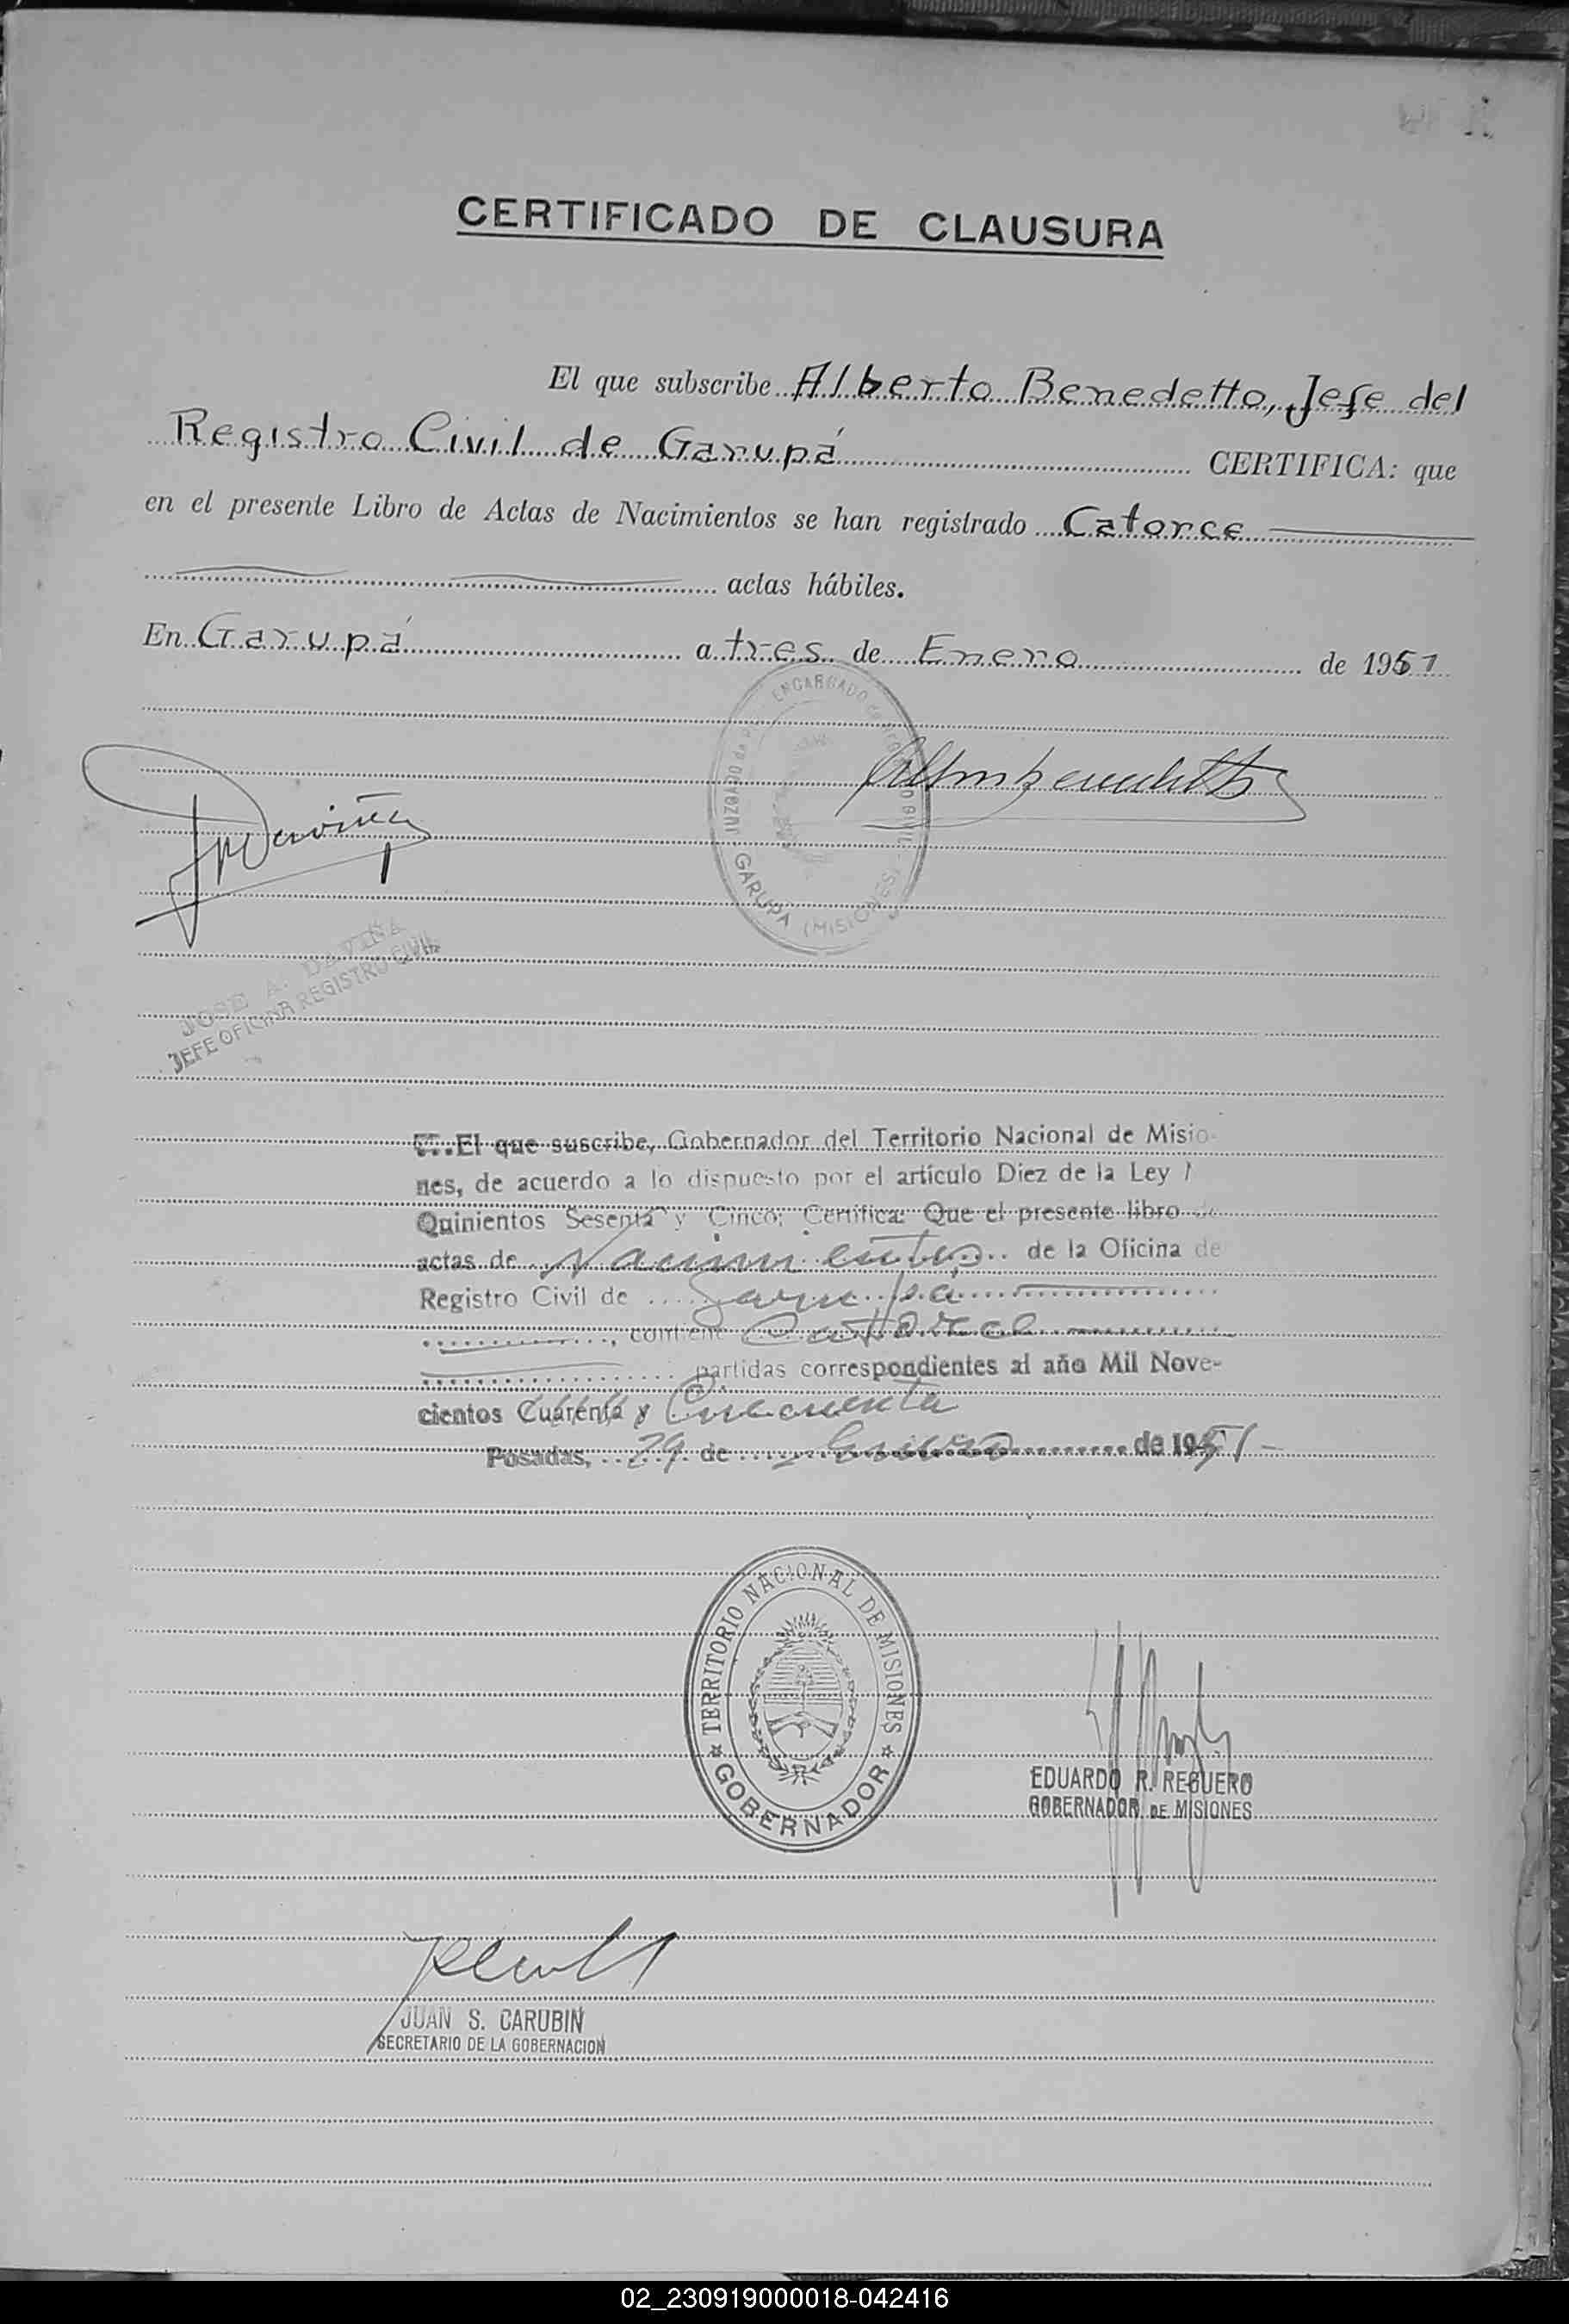 CERTIFICADO DE CLAUSURA
El que subscribe Alberto Benedetto, Jefe del
Registro Civil de Garupá CERTIFICA: que
en el presente Libro de Actas de Nacimientos se han registrado Catorce
actas hábiles.
En Garupá a tres de Enero de 1951
ENCARGADO
JUZGADO de
GARUPA (MISIONES)
JOSE A. DAVIÑA
JEFE OFICINA REGISTRO CIVIL
El que suscribe, Gobernador del Territorio Nacional de Misio-
nes, de acuerdo a lo dispuesto por el artículo Diez de la Ley 1
Quinientos Sesenta y Cinco; Certifica: Que el presente libro de
actas de Nacimientos de la Oficina de
Registro Civil de Garupá
, contiene Catorce
partidas correspondientes al año Mil Nove-
cientos Cuarenta y Cincuenta
Posadas, 29 de Enero de 1951
TERRITORIO NACIONAL DE MISIONES
GOBERNADOR
EDUARDO R. REGUERO
GOBERNADOR DE MISIONES
JUAN S. CARUBIN
SECRETARIO DE LA GOBERNACION
02_230919000018-042416